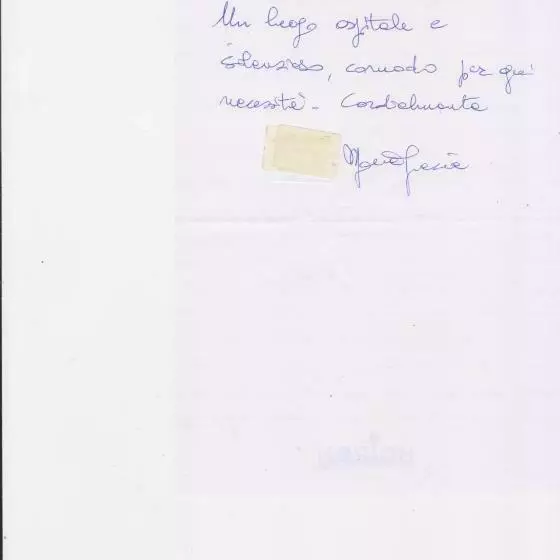 Un luogo ospitale e
silenzioso, comodo per
necessità - Cordialmente